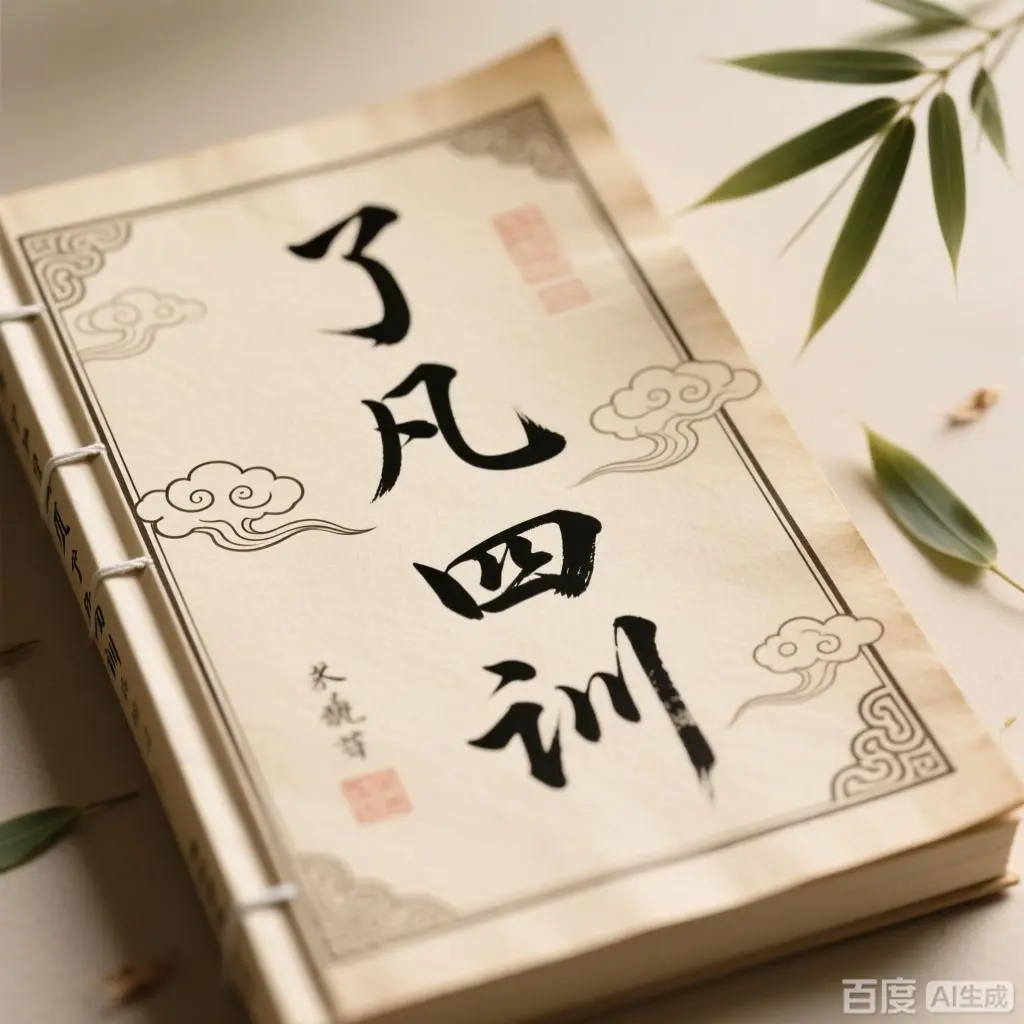 了凡四训
百度 AI生成